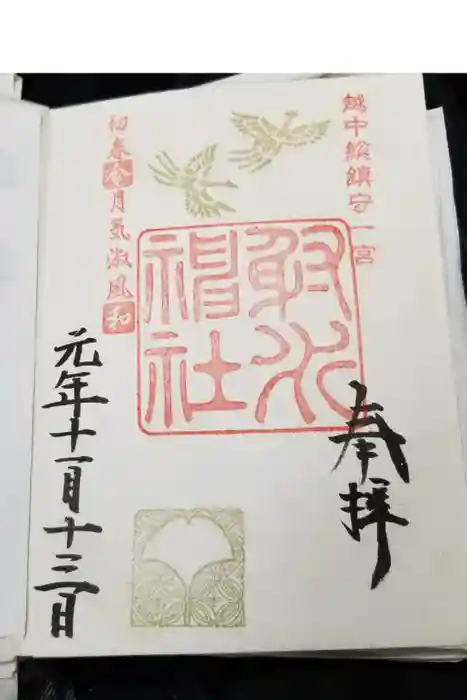 越中総鎮守一宮
奉拝
射水
神社
初春令月氣淑風和
元年十一月十三日